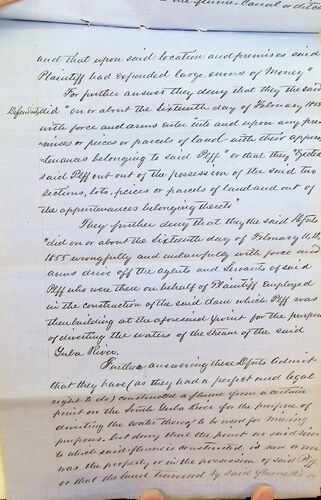 the flume Canal or ditch
and that upon said location and premises said
Plaintiff had expended large sums of Money"
For further answer they deny that they the said
Defendants did "on or about the Sixteenth day of February 1855
with force and arms enter into and upon any pre-
-mises or pieces or parcels of land with their appur-
-tenances belonging to said Plff" or that they "Ejected
said Plff out of the possession of the said two
sections, lots, pieces or parcels of land and out of
the appurtenances belonging thereto"
They further deny that they the said Defts
"did on or about the Sixteenth day of February A.D.
1855 wrongfully and unlawfully with force and
arms drive off the agents and Servants of said
Plff who were there on behalf of Plaintiff employed
in the construction of the said dam which Plff was
then building at the aforesaid point for the purpose
of diverting the waters of the stream of the said
Yuba River.
Further answering these Defts admit
that they have (as they had a perfect and legal
right to do) constructed a flume from a certain
point on the South Yuba River for the purpose of
diverting the water thereof to be used for mining
purposes, but deny that the point on said river
to which said flume is constructed is now or ever
was the property or in the possession of said Plff
or that the land traversed by said flume is or